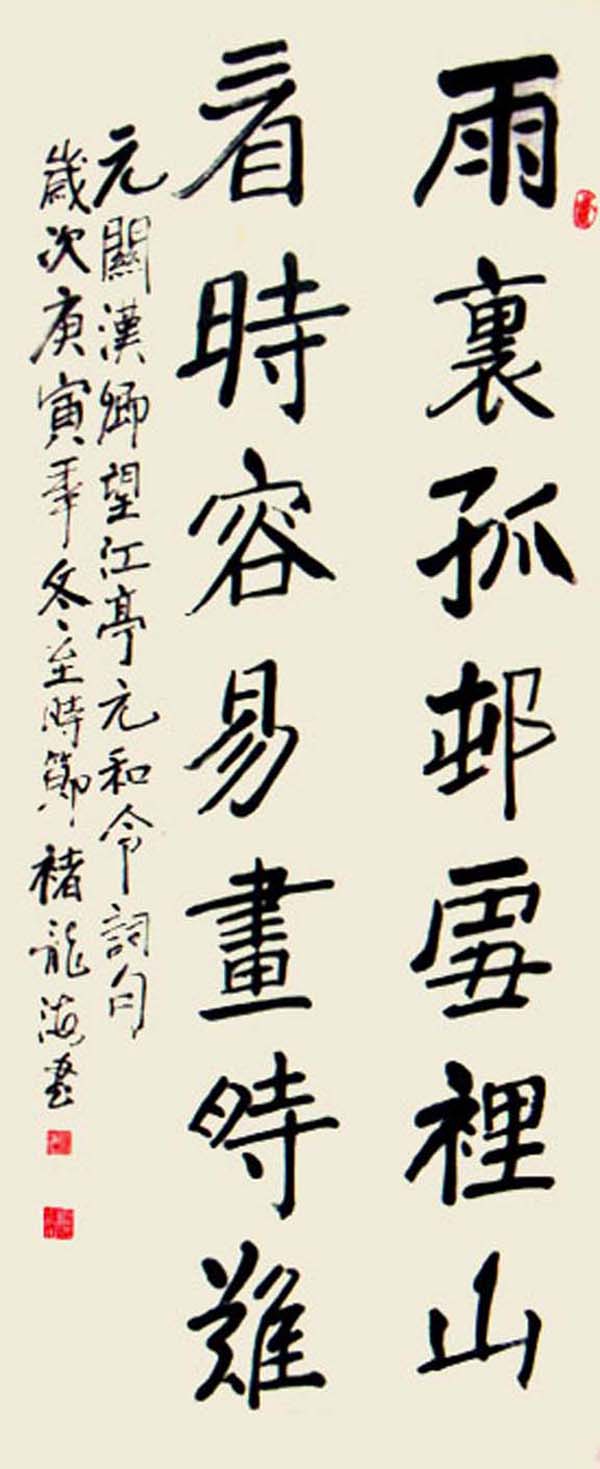 雨裏孤邨雪裡山
看時容易畫時難
元關漢卿望江亭元和令詞句
歲次庚寅年冬至時節褚龍海書